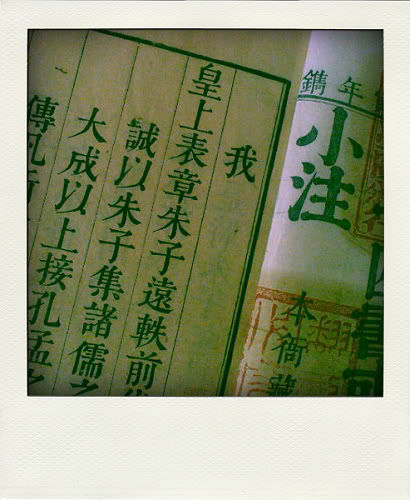 年鐫
四書
小注
本衙藏
我
皇上表章朱子遠軼前
誠以朱子集諸儒之
大成以上接孔孟之
傳凡